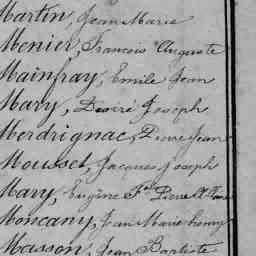 Martin, Jean Marie
Menier, Francois Auguste
Mainfray, Emile Jean
Mary, Desiré Joseph
Merdrignac, Pierre Jean
Mousset, Jacques Joseph
Mary, Eugène Pierre
Moncany, Jean Marie
Masson, Jean Baptiste